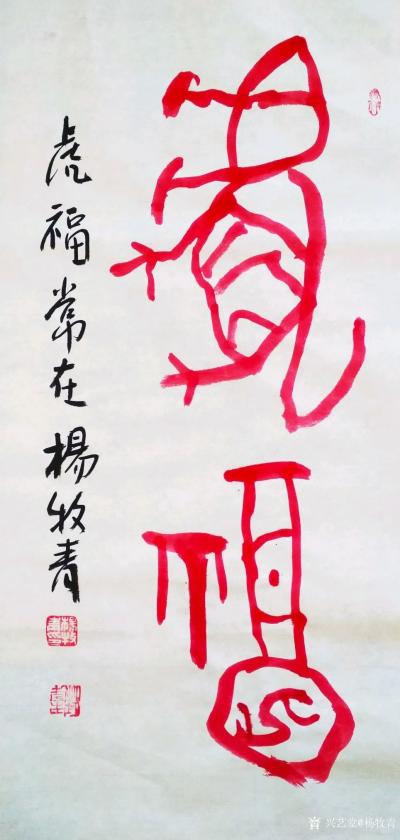 虎福
虎福常在 楊牧青
兴艺堂@杨牧青